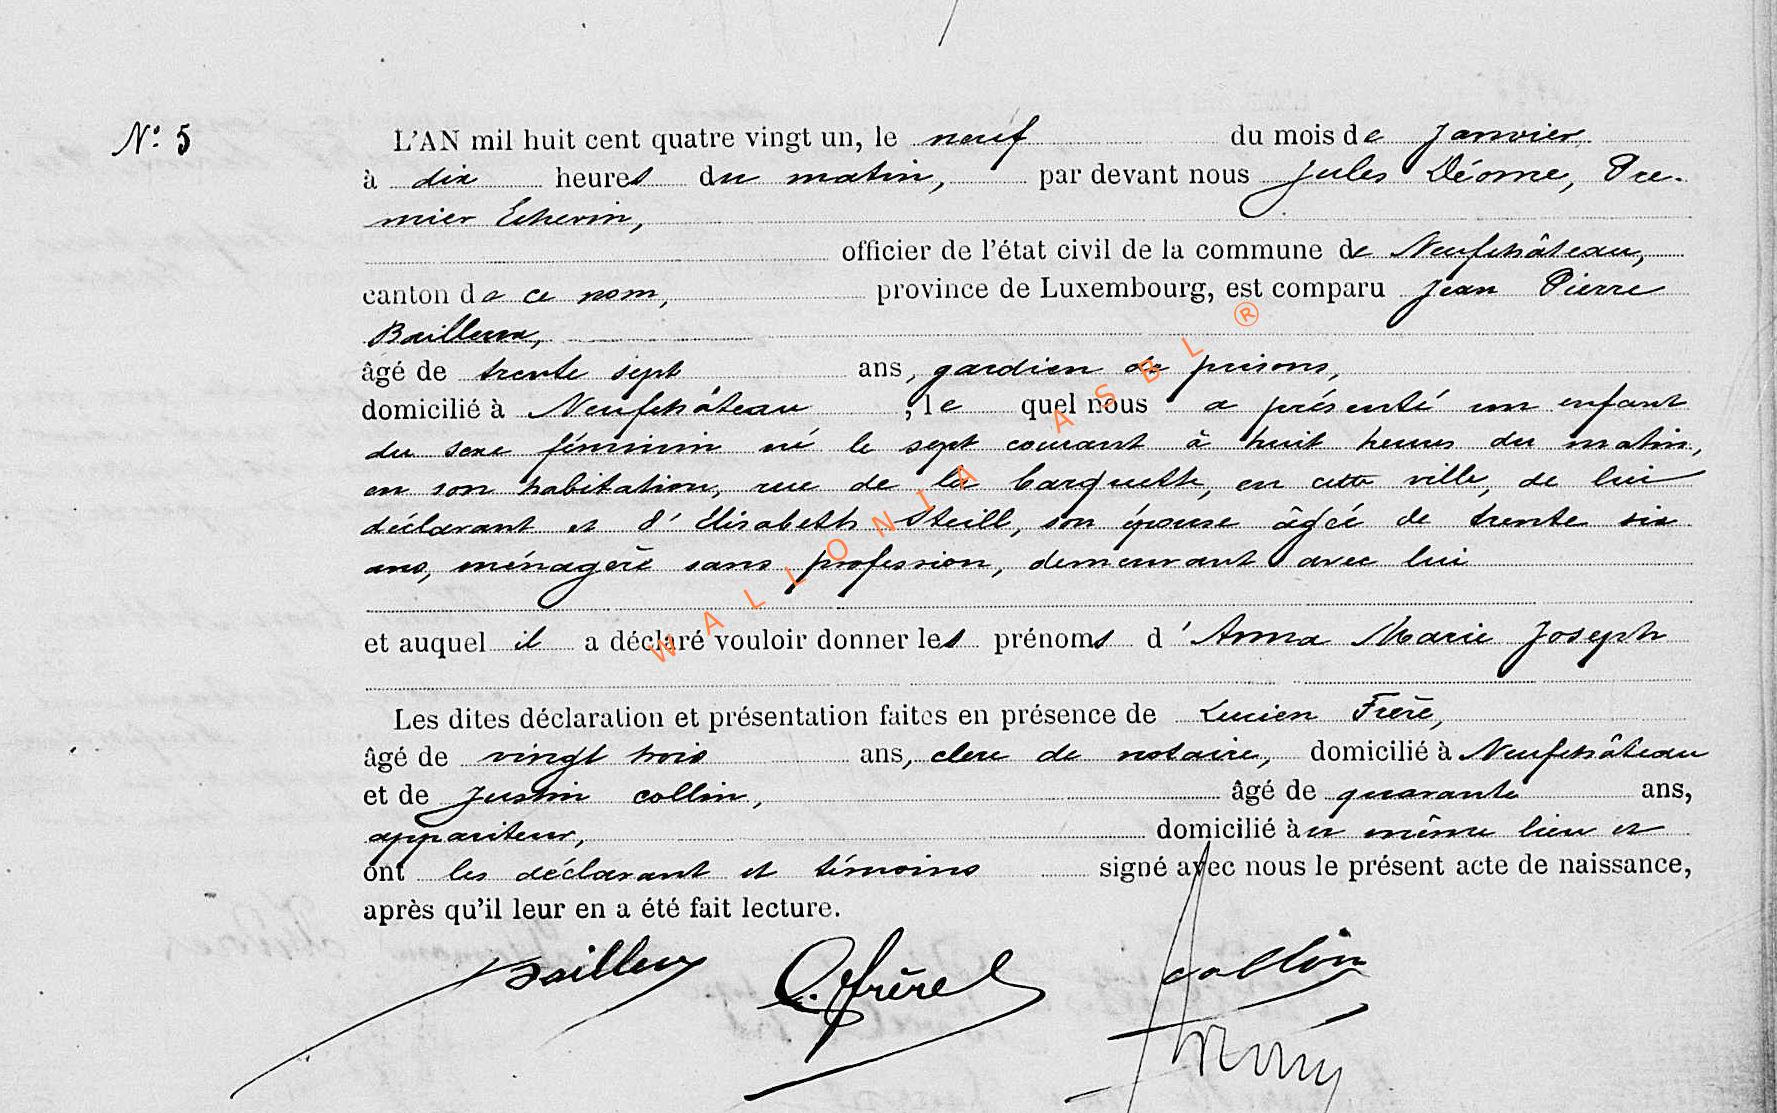 N° 5
L'AN mil huit cent quatre vingt un, le neuf du mois de Janvier
à dix heures du matin, par devant nous Jules Déome, Pre-
mier Echevin,
officier de l'état civil de la commune de Neufchâteau,
canton de ce nom, province de Luxembourg, est comparu Jean Pierre
Bailleux,
âgé de trente sept ans, gardien de prisons,
domicilié à Neufchâteau ; le quel nous a présenté un enfant
du sexe féminin né le sept courant à huit heures du matin,
en son habitation, rue de la Carquette, en cette ville, de lui
déclarant et d'Elisabeth Steill, son épouse âgée de trente six
ans, ménagère sans profession, demeurant avec lui
et auquel il a déclaré vouloir donner les prénoms d'Anna Marie Joseph
Les dites déclaration et présentation faites en présence de Lucien Frère,
âgé de vingt trois ans, clerc de notaire, domicilié à Neufchâteau
et de Justin Collin, âgé de quarante ans,
appariteur, domicilié au même lieu et
ont les déclarant et témoins signé avec nous le présent acte de naissance,
après qu'il leur en a été fait lecture.
Bailleux L. Frère Collin
WALLONIA ASBL ®